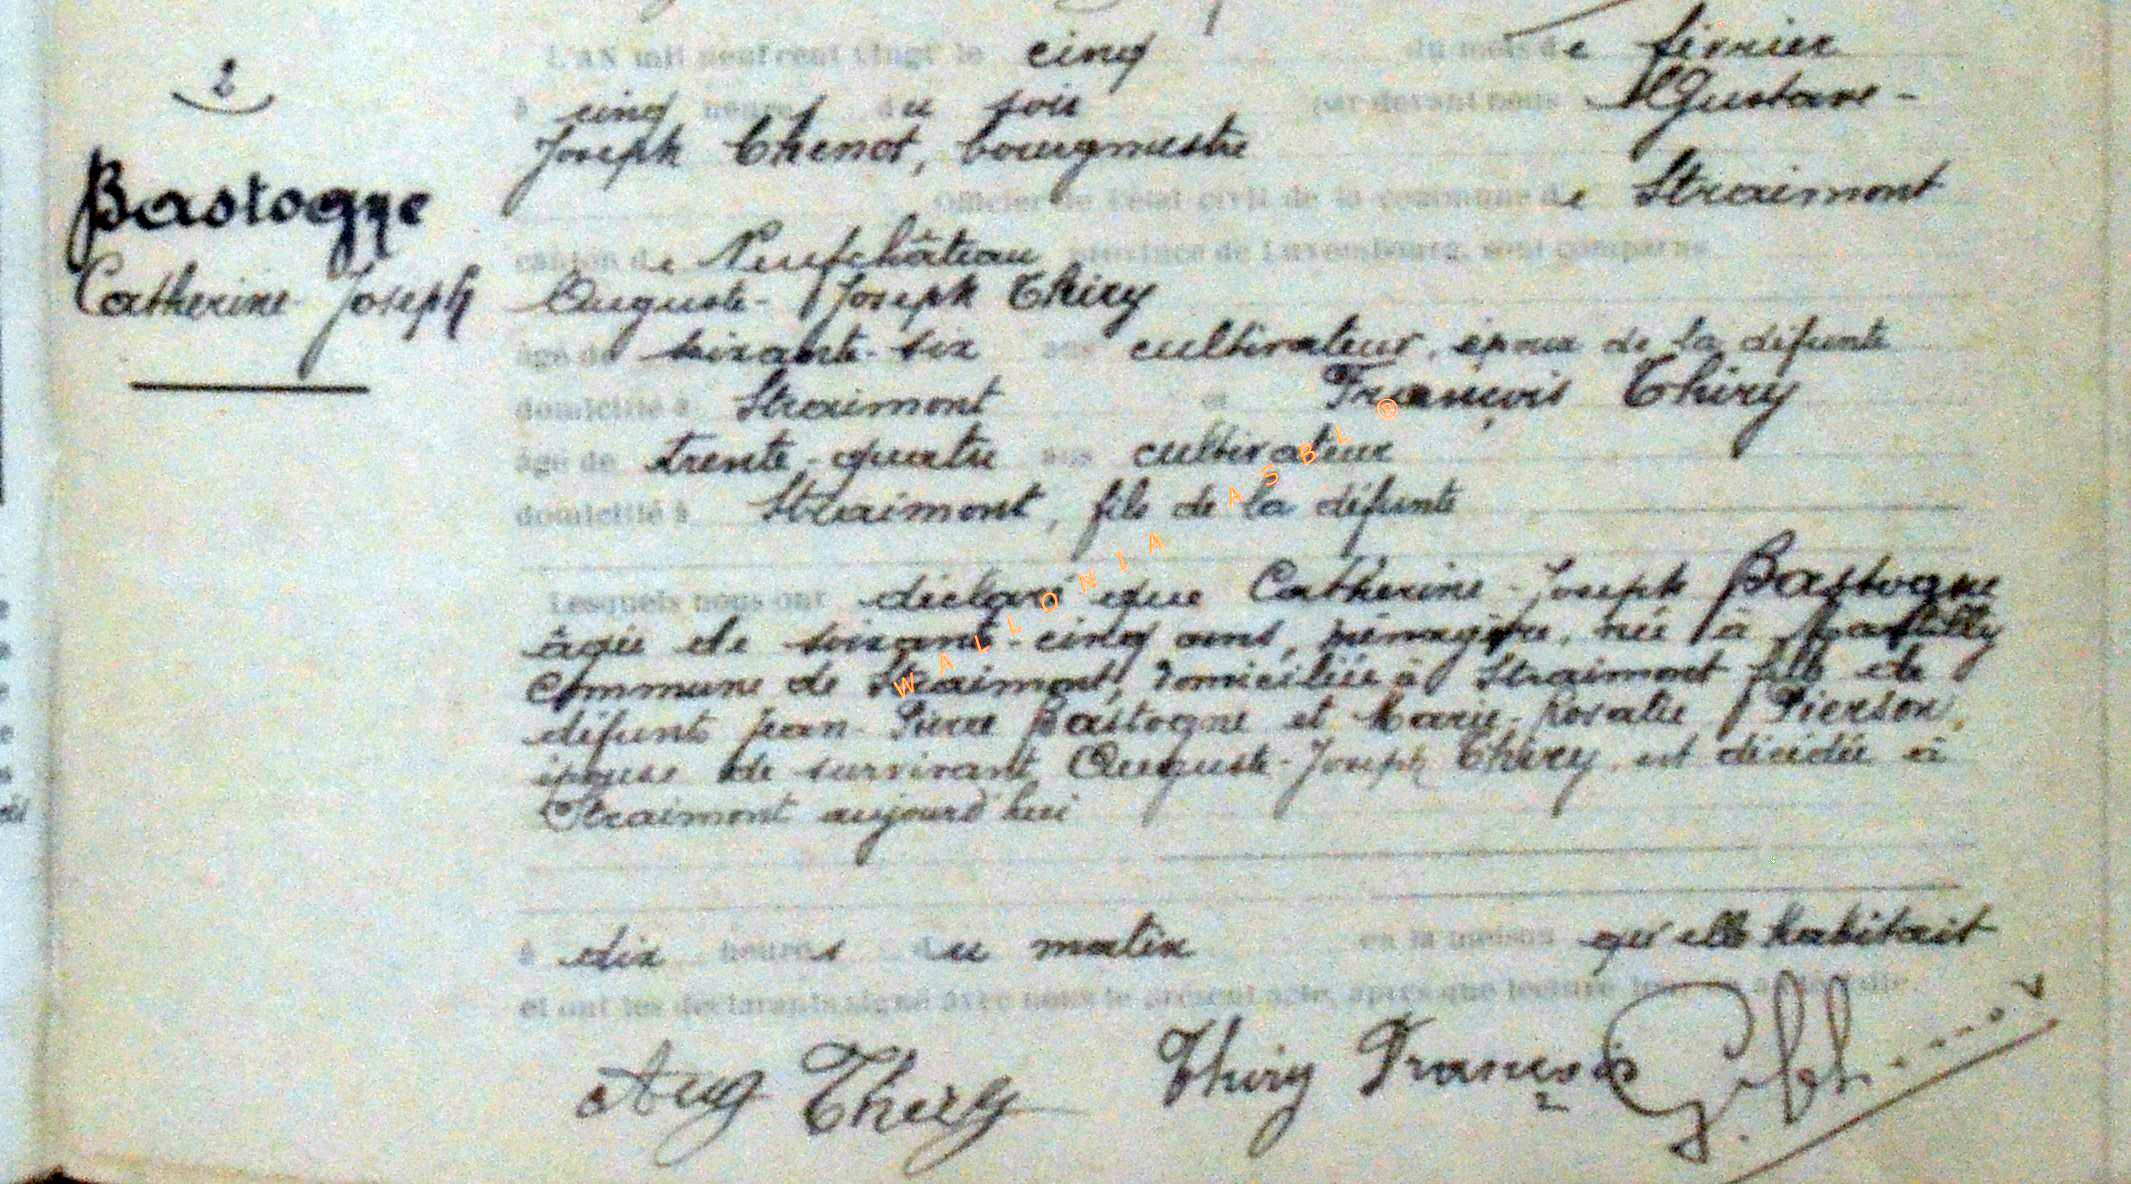 2
Bastogne
Catherine-Joseph
L'AN mil neuf cent vingt le cinq du mois de février
à cinq heures du soir par devant nous Gustave-
Joseph Thenot, bourgmestre
Officier de l'état civil de la commune de Straimont
canton de Neufchâteau province de Luxembourg, sont comparus
Auguste-Joseph Thiry
âgé de soixante-six ans cultivateur, époux de la défunte
domicilié à Straimont et François Thiry
âgé de trente-quatre ans cultivateur
domicilié à Straimont, fils de la défunte
Lesquels nous ont déclaré que Catherine-Joseph Bastogne
âgée de soixante-cinq ans, ménagère, née à Martilly
commune de Straimont, domiciliée à Straimont fille de
défunts Jean-Pierre Bastogne et Marie-Rosalie Pierson,
épouse de survivant Auguste-Joseph Thiry, est décédée à
Straimont aujourd'hui
à dix heures du matin en la maison qu'elle habitait
et ont les déclarants signé avec nous le présent acte, après que lecture leur en a été faite.
Aug Thiry Thiry François
WALLONIA ASBL ®